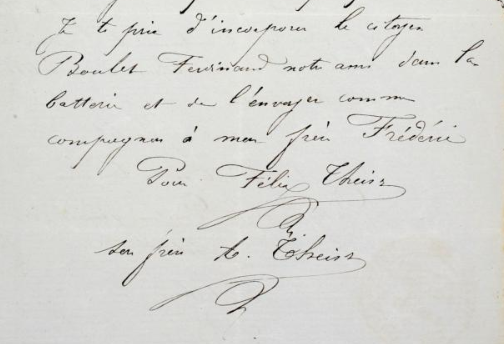 Je te prie d'incorporer le citoyen
Boulet Ferdinand notre ami dans la
batterie et de l'envoyer comme
compagnon à mon frère Frédéric
Pour Félix Theisz
son frère A. Theisz